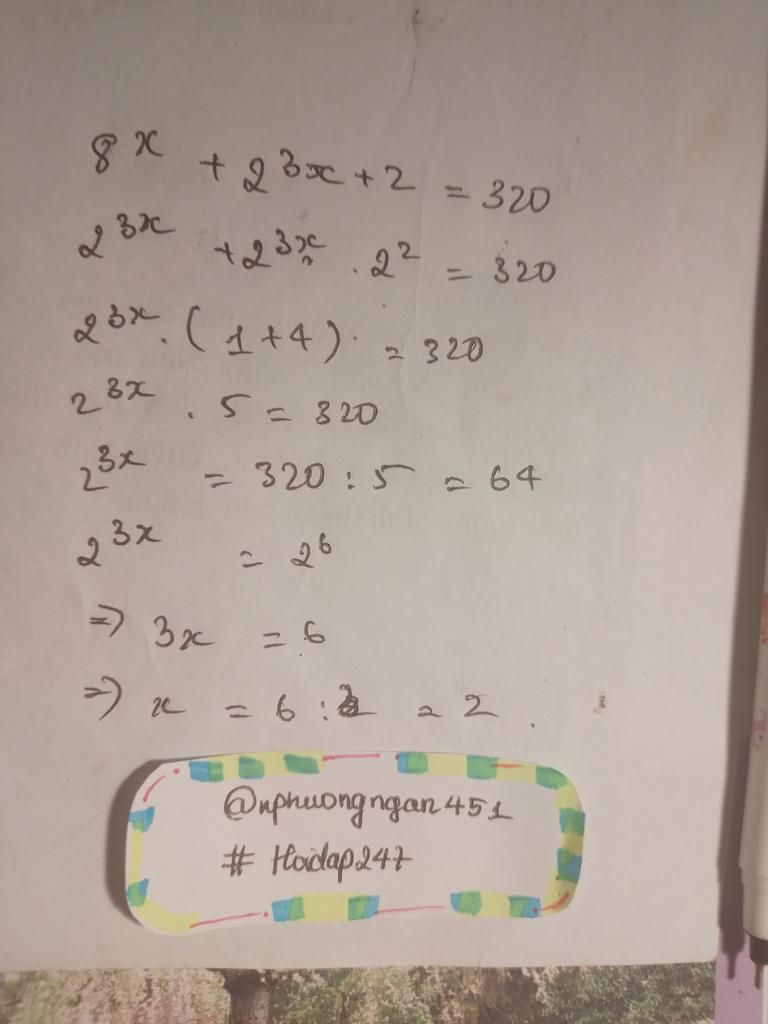 8^x + 2^{3x+2} = 320
2^{3x} + 2^{3x} . 2^2 = 320
2^{3x} . (1+4) = 320
2^{3x} . 5 = 320
2^{3x} = 320 : 5 = 64
2^{3x} = 2^6
=> 3x = 6
=> x = 6 : = 2 .
@nphuongngan451
# Hoidap247